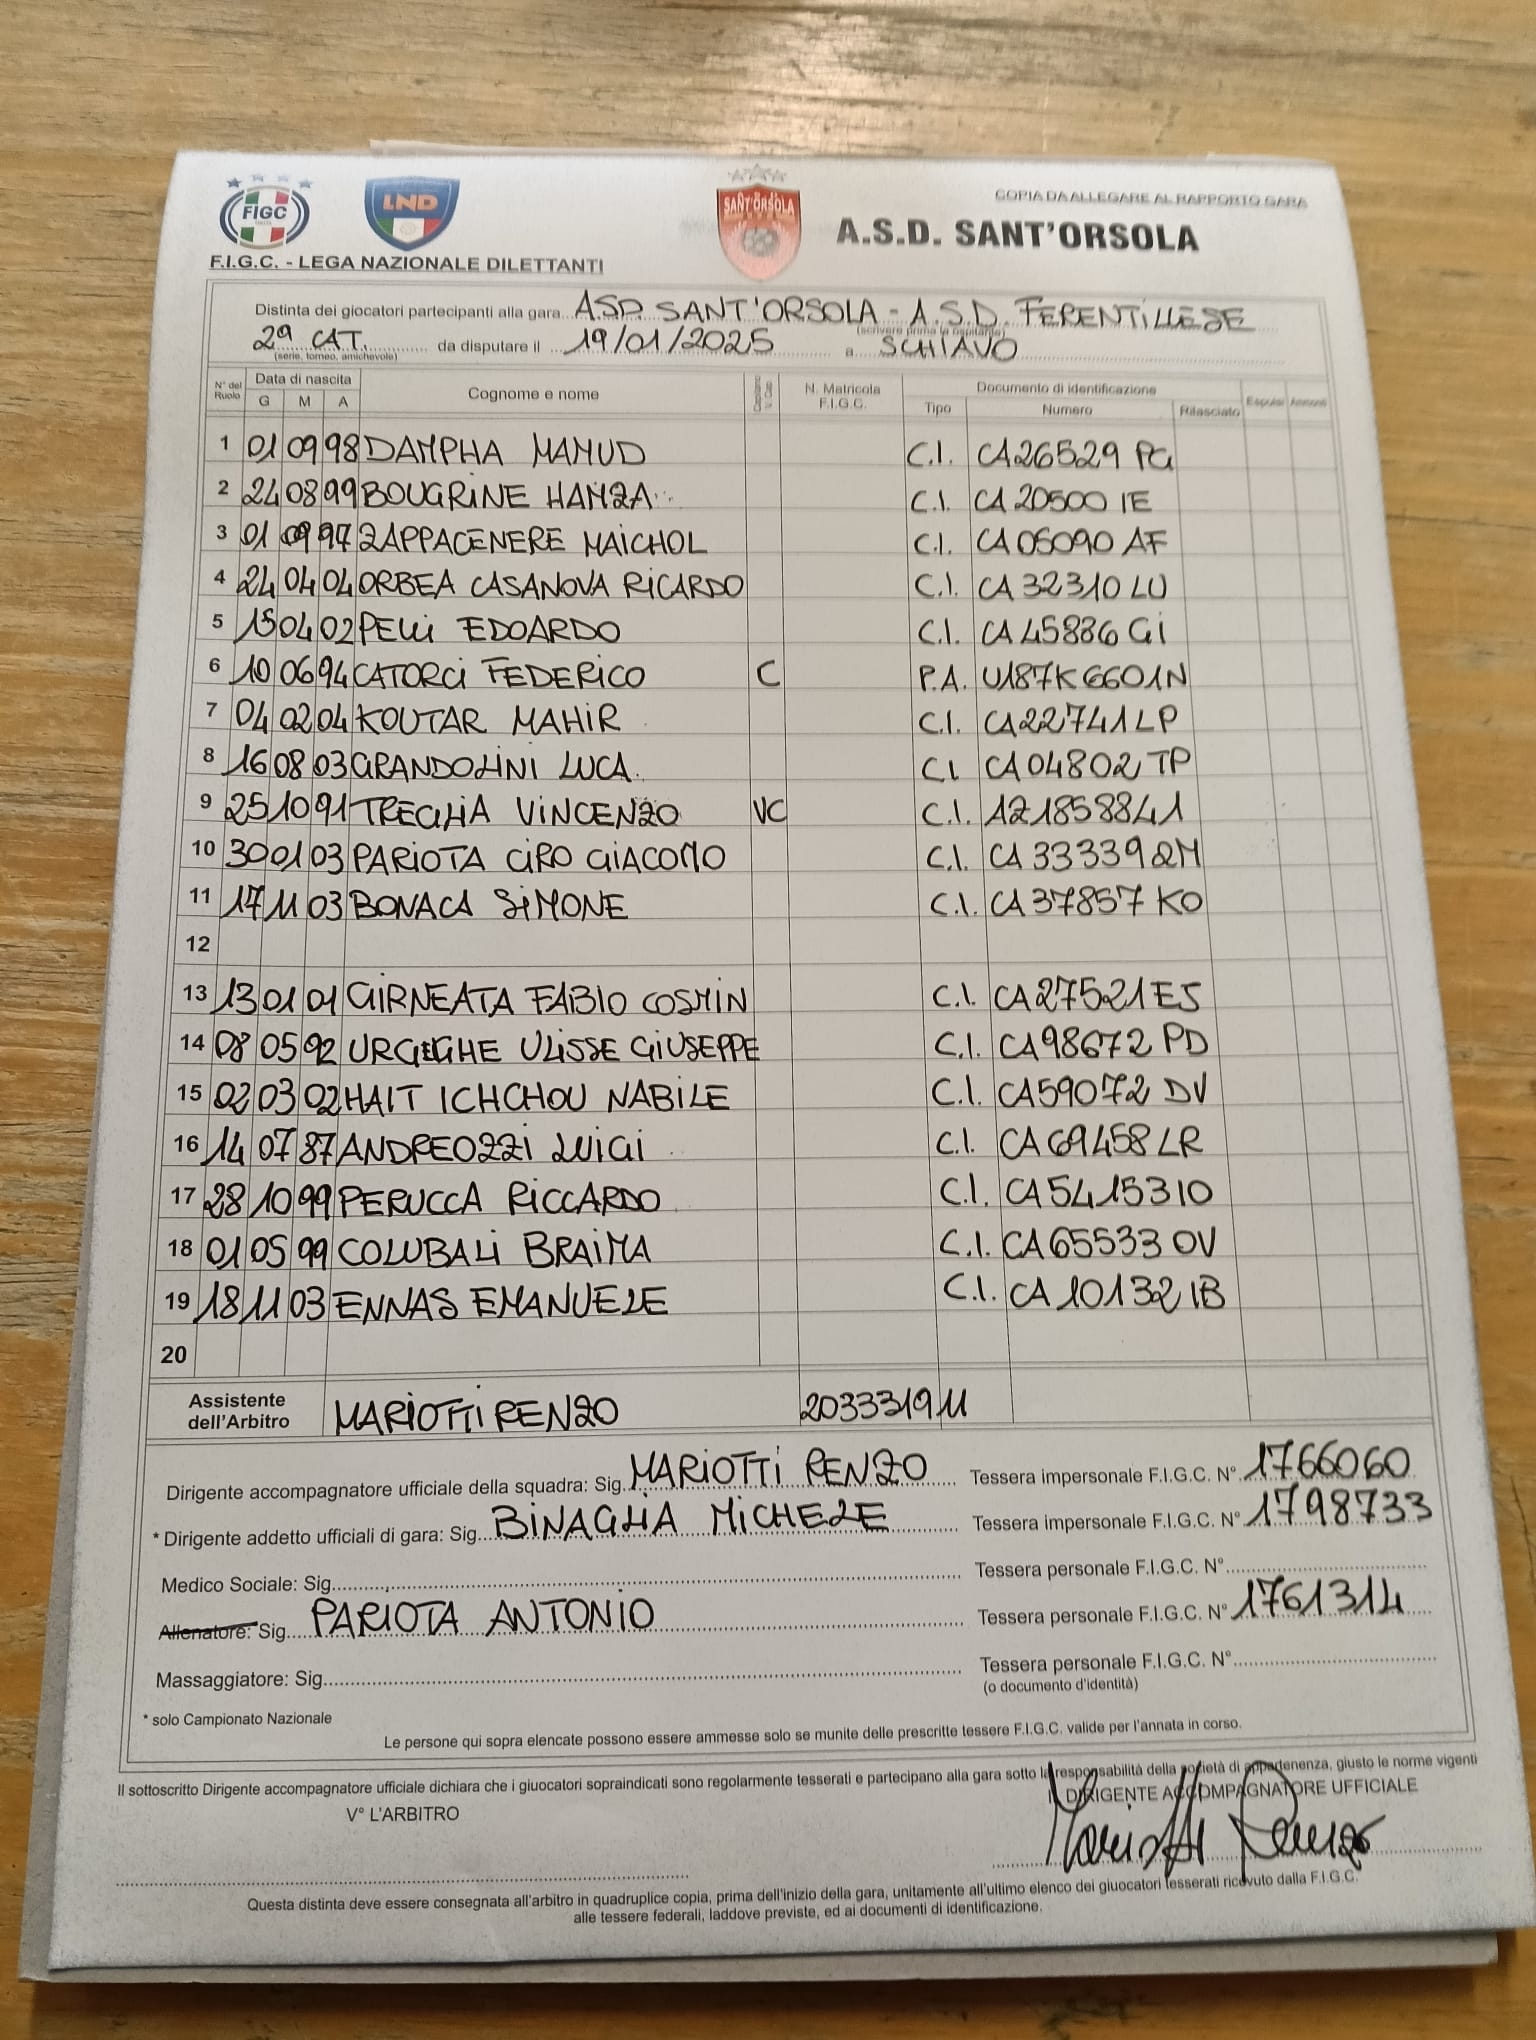 FIGC
LND
SANT'ORSOLA
COPIA DA ALLEGARE AL RAPPORTO GARA
A.S.D. SANT'ORSOLA
F.I.G.C. - LEGA NAZIONALE DILETTANTI
Distinta dei giocatori partecipanti alla gara ASD. SANT'ORSOLA - A.S.D. FERENTILLESE
(scrivere prima la ospitante)
2ª CAT. da disputare il 19/01/2025 a SCHIAVO
(serie, torneo, amichevole)
N° del Ruolo Data di nascita Cognome e nome Capitano V. Cap. N. Matricola F.I.G.C. Documento di identificazione Espulsi Ammoniti
G M A Tipo Numero Rilasciato
1 01 09 98 DAMPHA MAMUD C.I. CA26529 PG
2 24 08 99 BOUGRINE HAMZA C.I. CA 20500 IE
3 01 09 97 ZAPPACENERE MAICHOL C.I. CA 05090 AF
4 24 04 04 ORBEA CASANOVA RICARDO C.I. CA 32310 LU
5 15 04 02 PELLI EDOARDO C.I. CA 45886 GI
6 10 06 94 CATORCI FEDERICO C P.A. U187K6601N
7 04 02 04 KOUTAR MAHIR C.I. CA22741LP
8 16 08 03 GRANDOLINI LUCA C.I CA04802 TP
9 25 10 91 TREGLIA VINCENZO VC C.I. AZ1858841
10 30 01 03 PARIOTA CIRO GIACOMO C.I. CA 33339 QM
11 17 11 03 BONACA SIMONE C.I. CA 37857 KO
12
13 13 01 01 GIRNEATA FABIO COSMIN C.I. CA27521ES
14 08 05 92 URGEGHE ULISSE GIUSEPPE C.I. CA98672 PD
15 02 03 02 HAIT ICHCHOU NABILE C.I. CA59072 DV
16 14 07 87 ANDREOZZI LUIGI C.I. CA 69458 LR
17 28 10 99 PERUCCA RICCARDO C.I. CA54153IO
18 01 05 99 COLUBALI BRAIMA C.I. CA65533 OV
19 18 11 03 ENNAS EMANUELE C.I. CA 10132 IB
20
Assistente dell'Arbitro MARIOTTI RENZO 203331911
Dirigente accompagnatore ufficiale della squadra: Sig. MARIOTTI RENZO Tessera impersonale F.I.G.C. N°. 1766060
* Dirigente addetto ufficiali di gara: Sig. BINAGLIA MICHELE Tessera impersonale F.I.G.C. N° 1798733
Medico Sociale: Sig. Tessera personale F.I.G.C. N°
Allenatore: Sig. PARIOTA ANTONIO Tessera personale F.I.G.C. N° 1761314
Massaggiatore: Sig. Tessera personale F.I.G.C. N°
(o documento d'identità)
* solo Campionato Nazionale
Le persone qui sopra elencate possono essere ammesse solo se munite delle prescritte tessere F.I.G.C. valide per l'annata in corso.
Il sottoscritto Dirigente accompagnatore ufficiale dichiara che i giuocatori sopraindicati sono regolarmente tesserati e partecipano alla gara sotto la responsabilità della società di appartenenza, giusto le norme vigenti
V° L'ARBITRO IL DIRIGENTE ACCOMPAGNATORE UFFICIALE
Mariotti Renzo
Questa distinta deve essere consegnata all'arbitro in quadruplice copia, prima dell'inizio della gara, unitamente all'ultimo elenco dei giuocatori tesserati ricevuto dalla F.I.G.C.
alle tessere federali, laddove previste, ed ai documenti di identificazione.